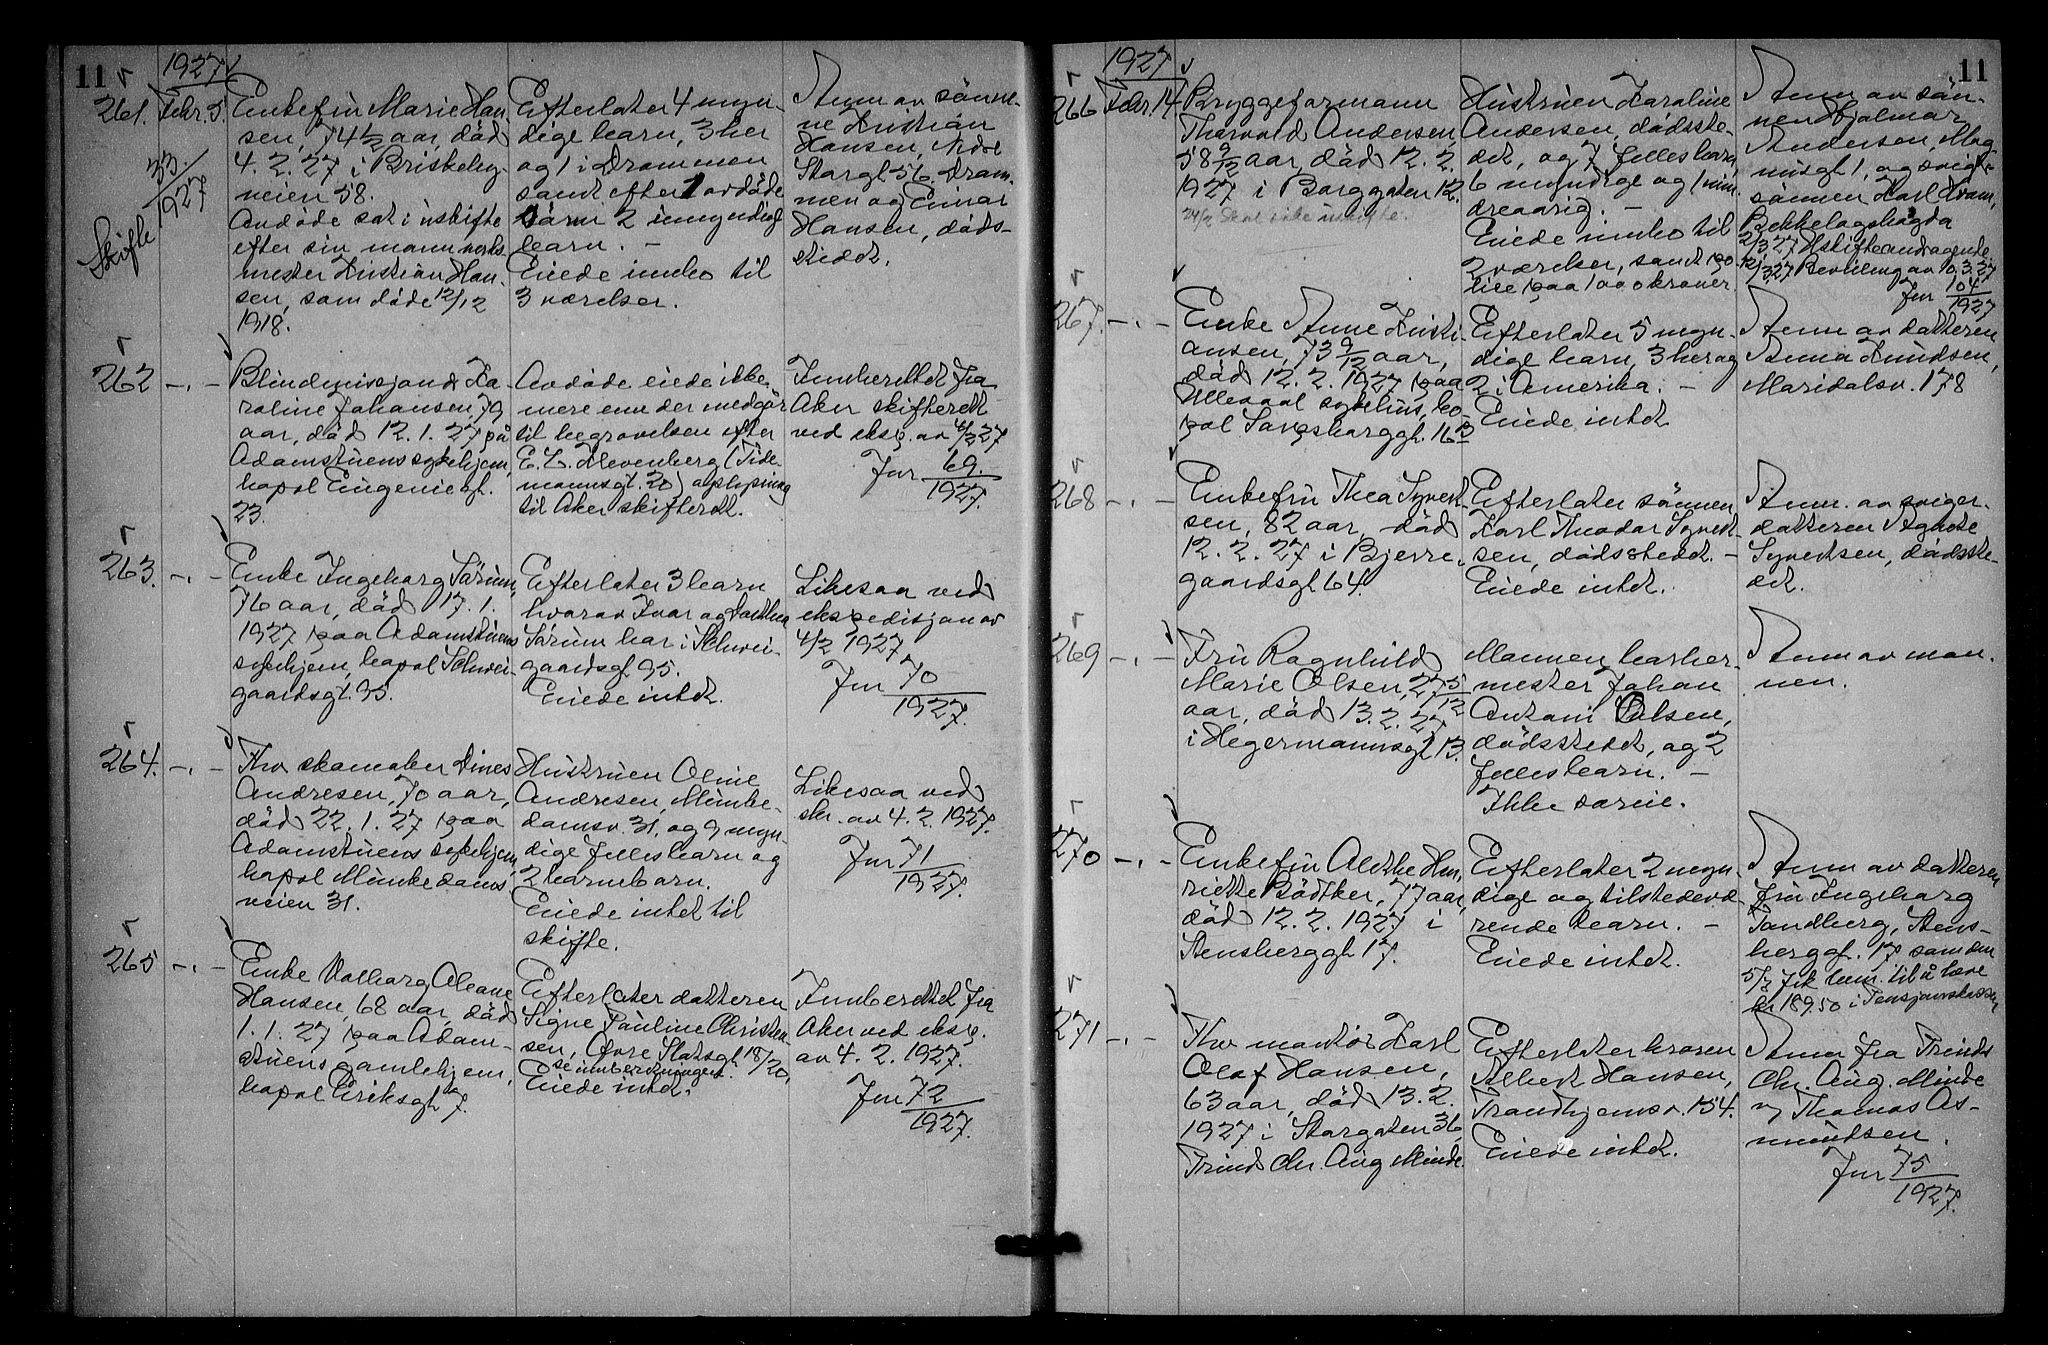 11
1927
261. Febr. 5
33/1927
Skifte
Enkefru Marie Han-
sen, 74 1/2 aar, död
4. 2. 27 i Briskeby-
veien 58.
Avdöde sat i uskifte
efter sin mann verks-
mester Kristian Han-
sen, som döde 12/12
1918.
Efterlater 4 myn-
dige barn, 3 her
og 1 i Drammen
samt efter 1 avdöde
barn 2 umyndige
barn. -
Eiede innbo til
3 værelser.
Anm av sönne-
ne Kristian
Hansen, Nedre
Storgt 56 Dram-
men og Einar
Hansen, döds-
stedet.
262 -„-
Blindepensjonär Ka-
roline Johansen, 79
aar, död 12. 1. 27 på
Adamstuens sykehjem,
bopol Eugeniegt.
23.
Avdöde eiede ikke
mere enn der medgår
til begravelsen efter
E. L. Klevenberg (Tide-
mannsgt. 20) oplysning
til Aker skifterett.
Innberettet fra
Aker skifterett
ved eksp. av 4/2 27
Jnr 69./1927.
263. -„-
Enke Ingeborg Sörum,
76 aar, död 17. 1.
1927 paa Adamstuens
sykehjem, bopol Schwei-
gaardsgt. 95.
Efterlater 3 barn
hvorav Ivar og Dorthea
Sörum bor i Schwei-
gaardsgt 95.
Eiede intet.
Likesaa ved
ekspedisjon av
4/2 1927
Jnr 70/1927.
264. -„-
Fhv skomaker Dines
Andresen, 70 aar,
död 22. 1. 27 paa
Adamstuens sykehjem,
bopol Munkedams
veien 31.
Hustruen Oline
Andresen, Munke-
damsv. 31, og 9 myn-
dige fellesbarn og
2 barnebarn.
Eiede intet til
skifte.
Likesaa ved
skr. av 4. 2. 1927.
Jnr 71/1927.
265 -„-
Enke Valborg Oleane
Hansen, 68 aar, död
1. 1. 27 paa Adam-
stuens gamlehjem,
bopol Eriksgt 7.
Efterlater datteren
Signe Pauline Christen-
sen, Övre Slotsgt 18/20,
se innberetningen.
Eiede intet.
Innberettet fra
Aker ved eksp.
av 4. 2. 1927.
Jnr 72/1927.
11
1927
266 Febr. 14
Bryggeformann
Thorvald Andersen,
58 9/12 aar, död 12. 2.
1927 i Borggaten 12.
24/2 Skal ikke uskifte.
Hustruen Karoline
Andersen, dödsste-
det, og 7 fellesbarn,
6 myndige og 1 min-
dreaarig. -
Eiede innbo til
2 værelser, samt po-
lise paa 1000 kroner
Anm av sön-
nen Hjalmar
Andersen, Mag-
nusgt 1, og övrige
sönnen Karl
Bekkelagshögda
2/3 27 Uskifteandragende
12/3 27 Bevilling av 10. 3. 27
Jnr 104/1927
267. -„-
Enke Anne Kristi-
ansen, 73 9/12 aar,
död 12. 2. 1927 paa
Ullevaal sykehus, bo-
pol Sarpsborggt. 16 B
Efterlater 5 myn-
dige barn, 3 her og
2 i Amerika. -
Eiede intet
Anm av datteren
Anna Knudsen,
Maridalsv. 178
268 -„-
Enkefru Thea Syvert-
sen, 82 aar, död
12. 2. 27 i Bjerre-
gaardsgt 64.
Efterlater sönnen
Karl Theodor Syvert-
sen, dödsstedet. -
Eiede intet.
Anm. av sviger-
datteren Agnete
Syvertsen, dödsste-
det.
269 -„-
Fru Ragnhild
Marie Olsen, 27 5/12
aar, död 13. 2. 27
i Hegermannsgt 13.
Mannen barber-
mester Johan
Antani Olsen,
dödsstedet, og 2
fellesbarn. -
Ikke særeie.
Anm av man-
nen.
270 -„-
Enkefru Alethe Hen-
riette Bödtker, 77 aar,
död 12. 2. 1927 i
Stensberggt 17.
Efterlater 2 myn-
dige og tilstedevæ-
rende barn. -
Eiede intet.
Anm av datteren
fru Ingeborg
Sandberg, Stens-
berggt. 17 som den
5/3 fik bem. til å hæve
kr 189.50 i Pensjonskassen
271 -„-
Fhv montör Karl
Olaf Hansen,
63 aar, död 13. 2.
1927 i Storgaten 36,
Trinds Chr. Aug Minde.
Efterlater broren
Albert Hansen,
Trondhjemsv. 154.
Eiede intet.
Anm fra Trinds
Chr. Aug. Minde
v/ Thomas As-
mundsen.
Jnr 75/1927.